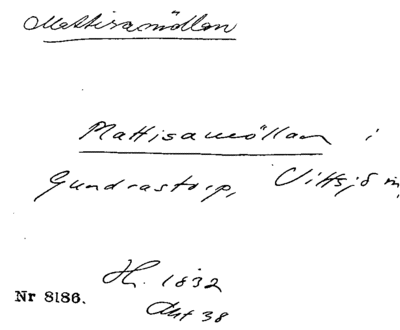 Mattisamöllan
Mattisamöllan i
Gundrastorp, Vittsjö sn,
H. 1832
Akt 38
Nr 8186.